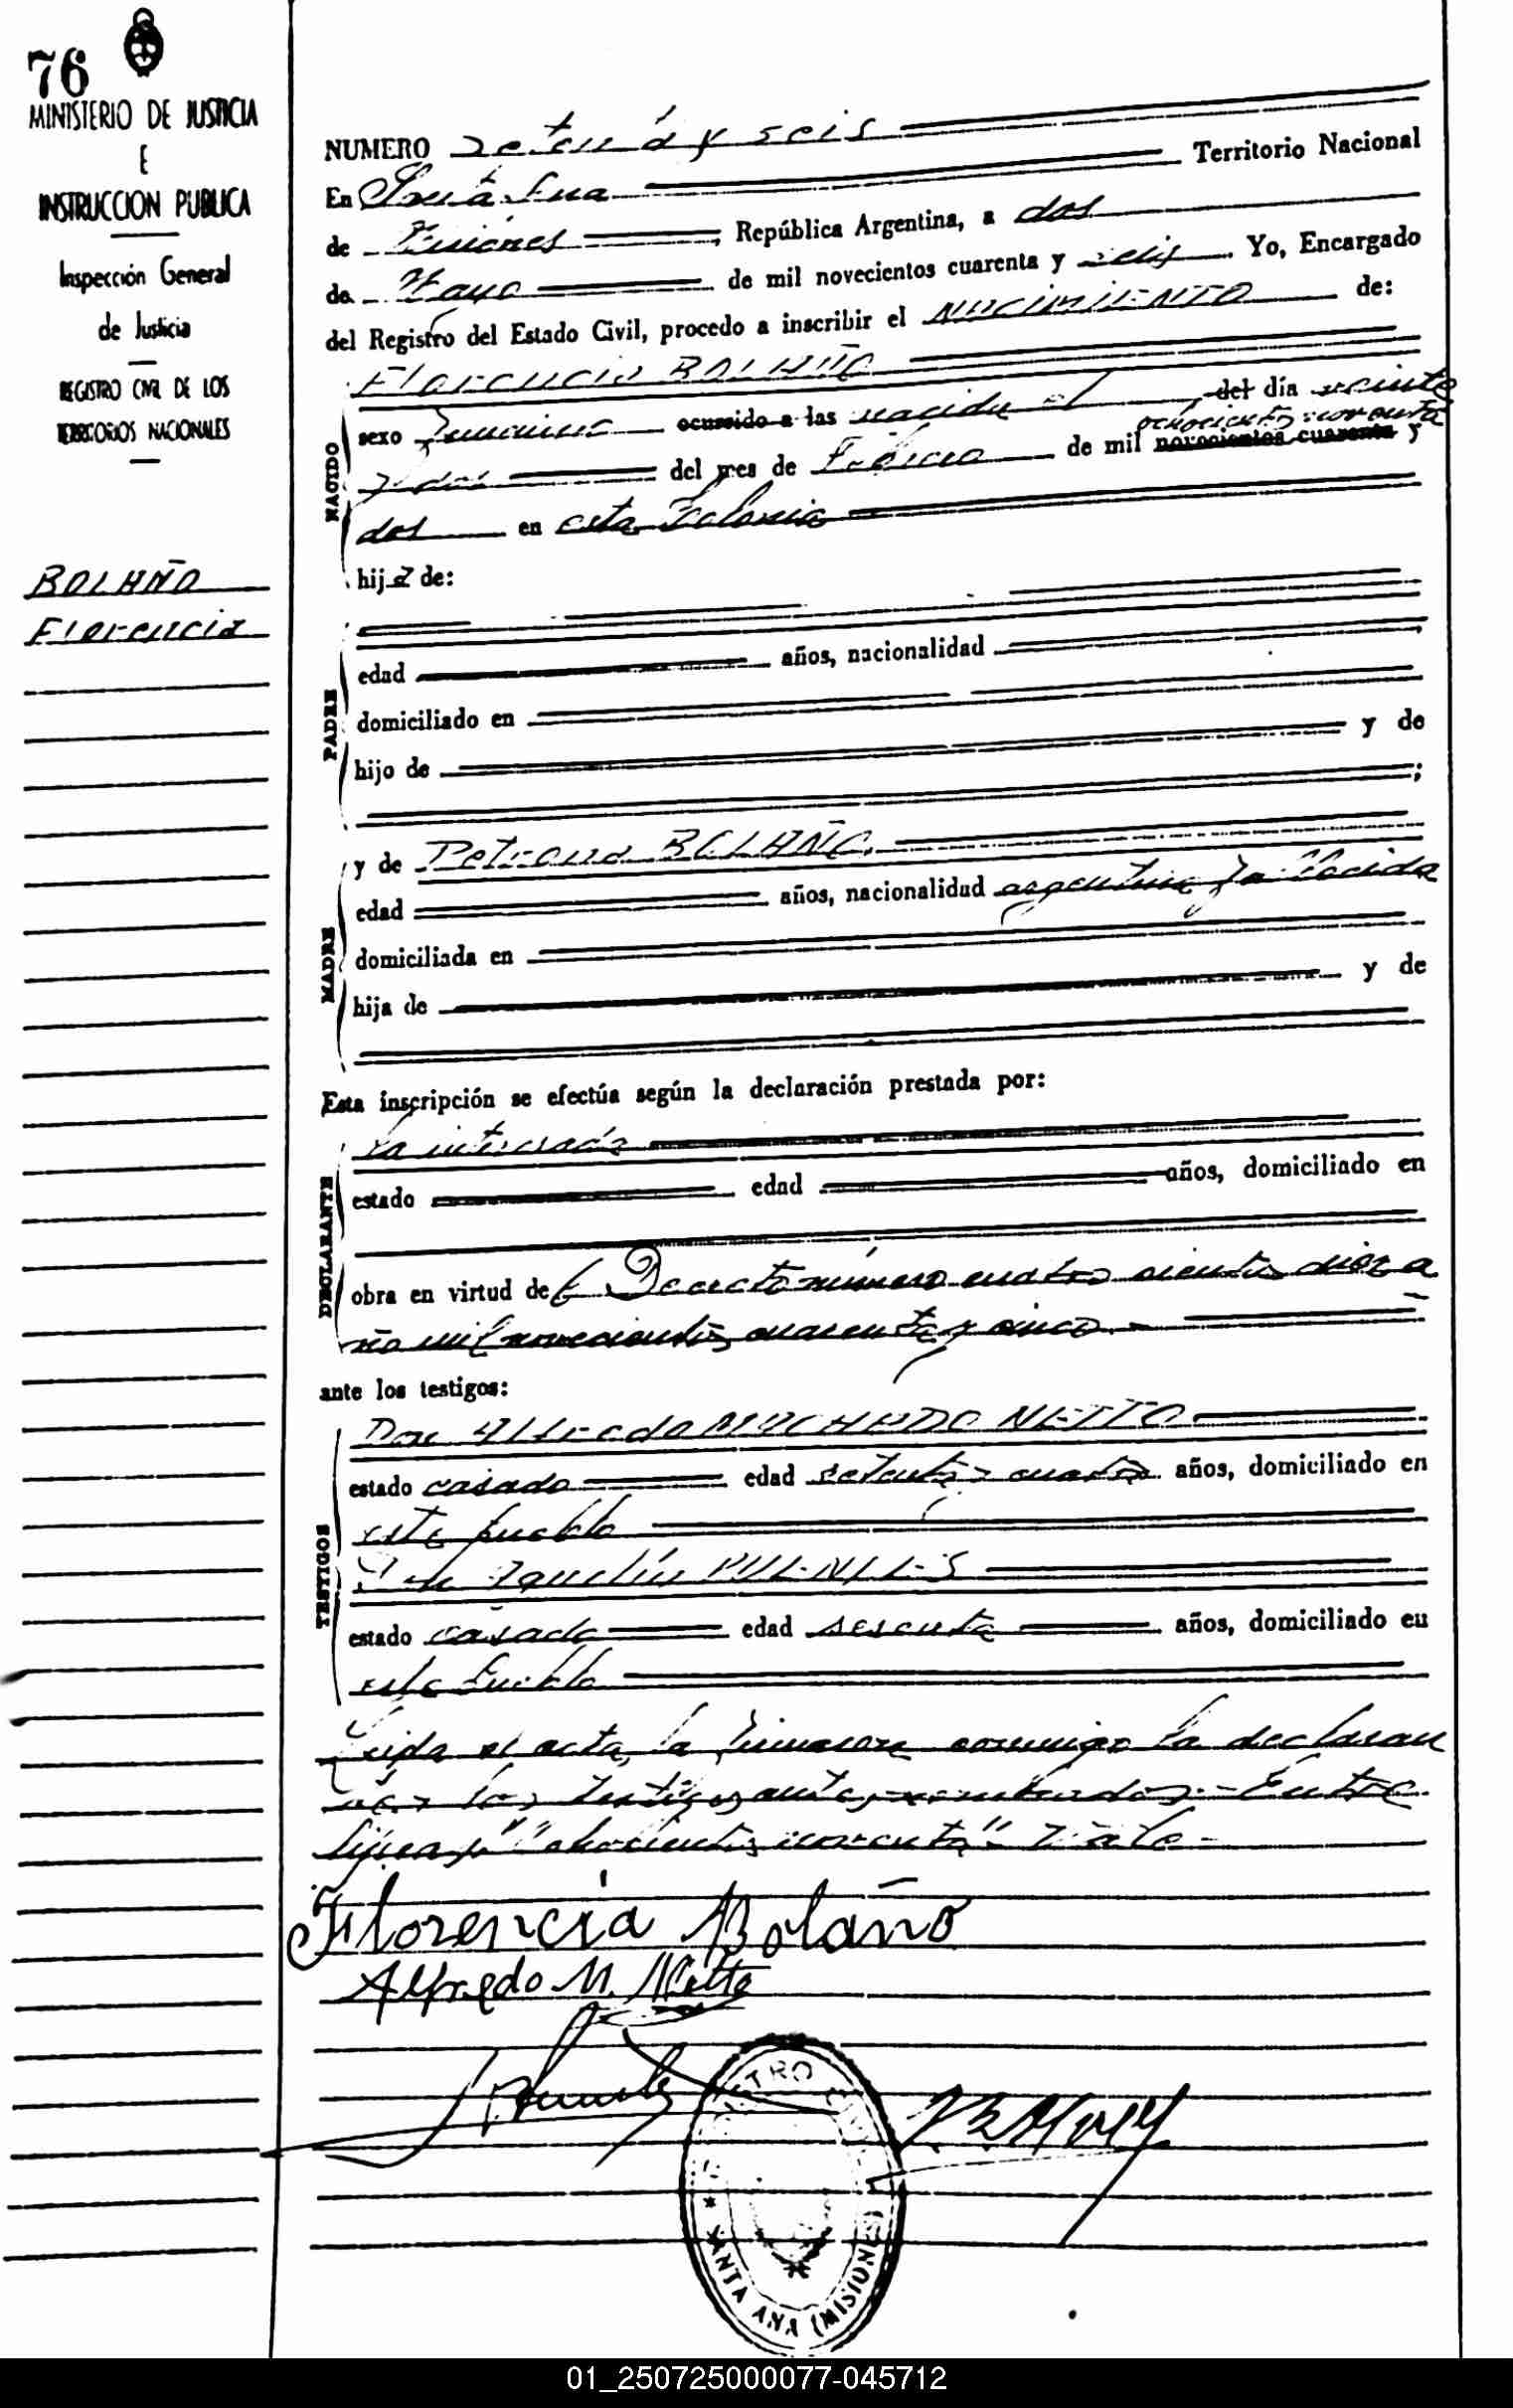 76
MINISTERIO DE JUSTICIA
E
INSTRUCCION PUBLICA
Inspección General
de Justicia
REGISTRO CIVIL DE LOS
TERRITORIOS NACIONALES
BOLAÑO
Florencia
NUMERO setenta y seis
En Santa Ana Territorio Nacional
de Misiones, República Argentina, a dos
de Mayo de mil novecientos cuarenta y seis. Yo, Encargado
del Registro del Estado Civil, procedo a inscribir el NACIMIENTO de:
Florencia BOLAÑO
NACIDO
sexo femenino ocurrido a las nacida el del día veinte
ochocientos noventa
y dos del mes de Febrero de mil novecientos cuarenta y
dos en esta Colonia
hija de:
PADRE
edad años, nacionalidad
domiciliado en
hijo de y de
;
MADRE
y de Petrona BOLAÑO.
edad años, nacionalidad argentina fallecida
domiciliada en
hija de y de
Esta inscripción se efectúa según la declaración prestada por:
DECLARANTE
la interesada
estado edad años, domiciliado en
obra en virtud del Decreto número cuatro cientos diez a
ño mil novecientos cuarenta y cinco.-
ante los testigos:
TESTIGOS
Don Alfredo MACHADO NETTO
estado casado edad setenta y cuatro años, domiciliado en
este pueblo
Don Agustín
estado casado edad sesenta años, domiciliado en
este Pueblo
Leida el acta, la firmaron conmigo la declaran
te y los testigos antes nombrados.- Entre
líneas: "ochocientos noventa" Vale-
Florencia Bolaño
Alfredo M. Netto
REGISTRO CIVIL
* SANTA ANA (MISIONES)
01_250725000077-045712